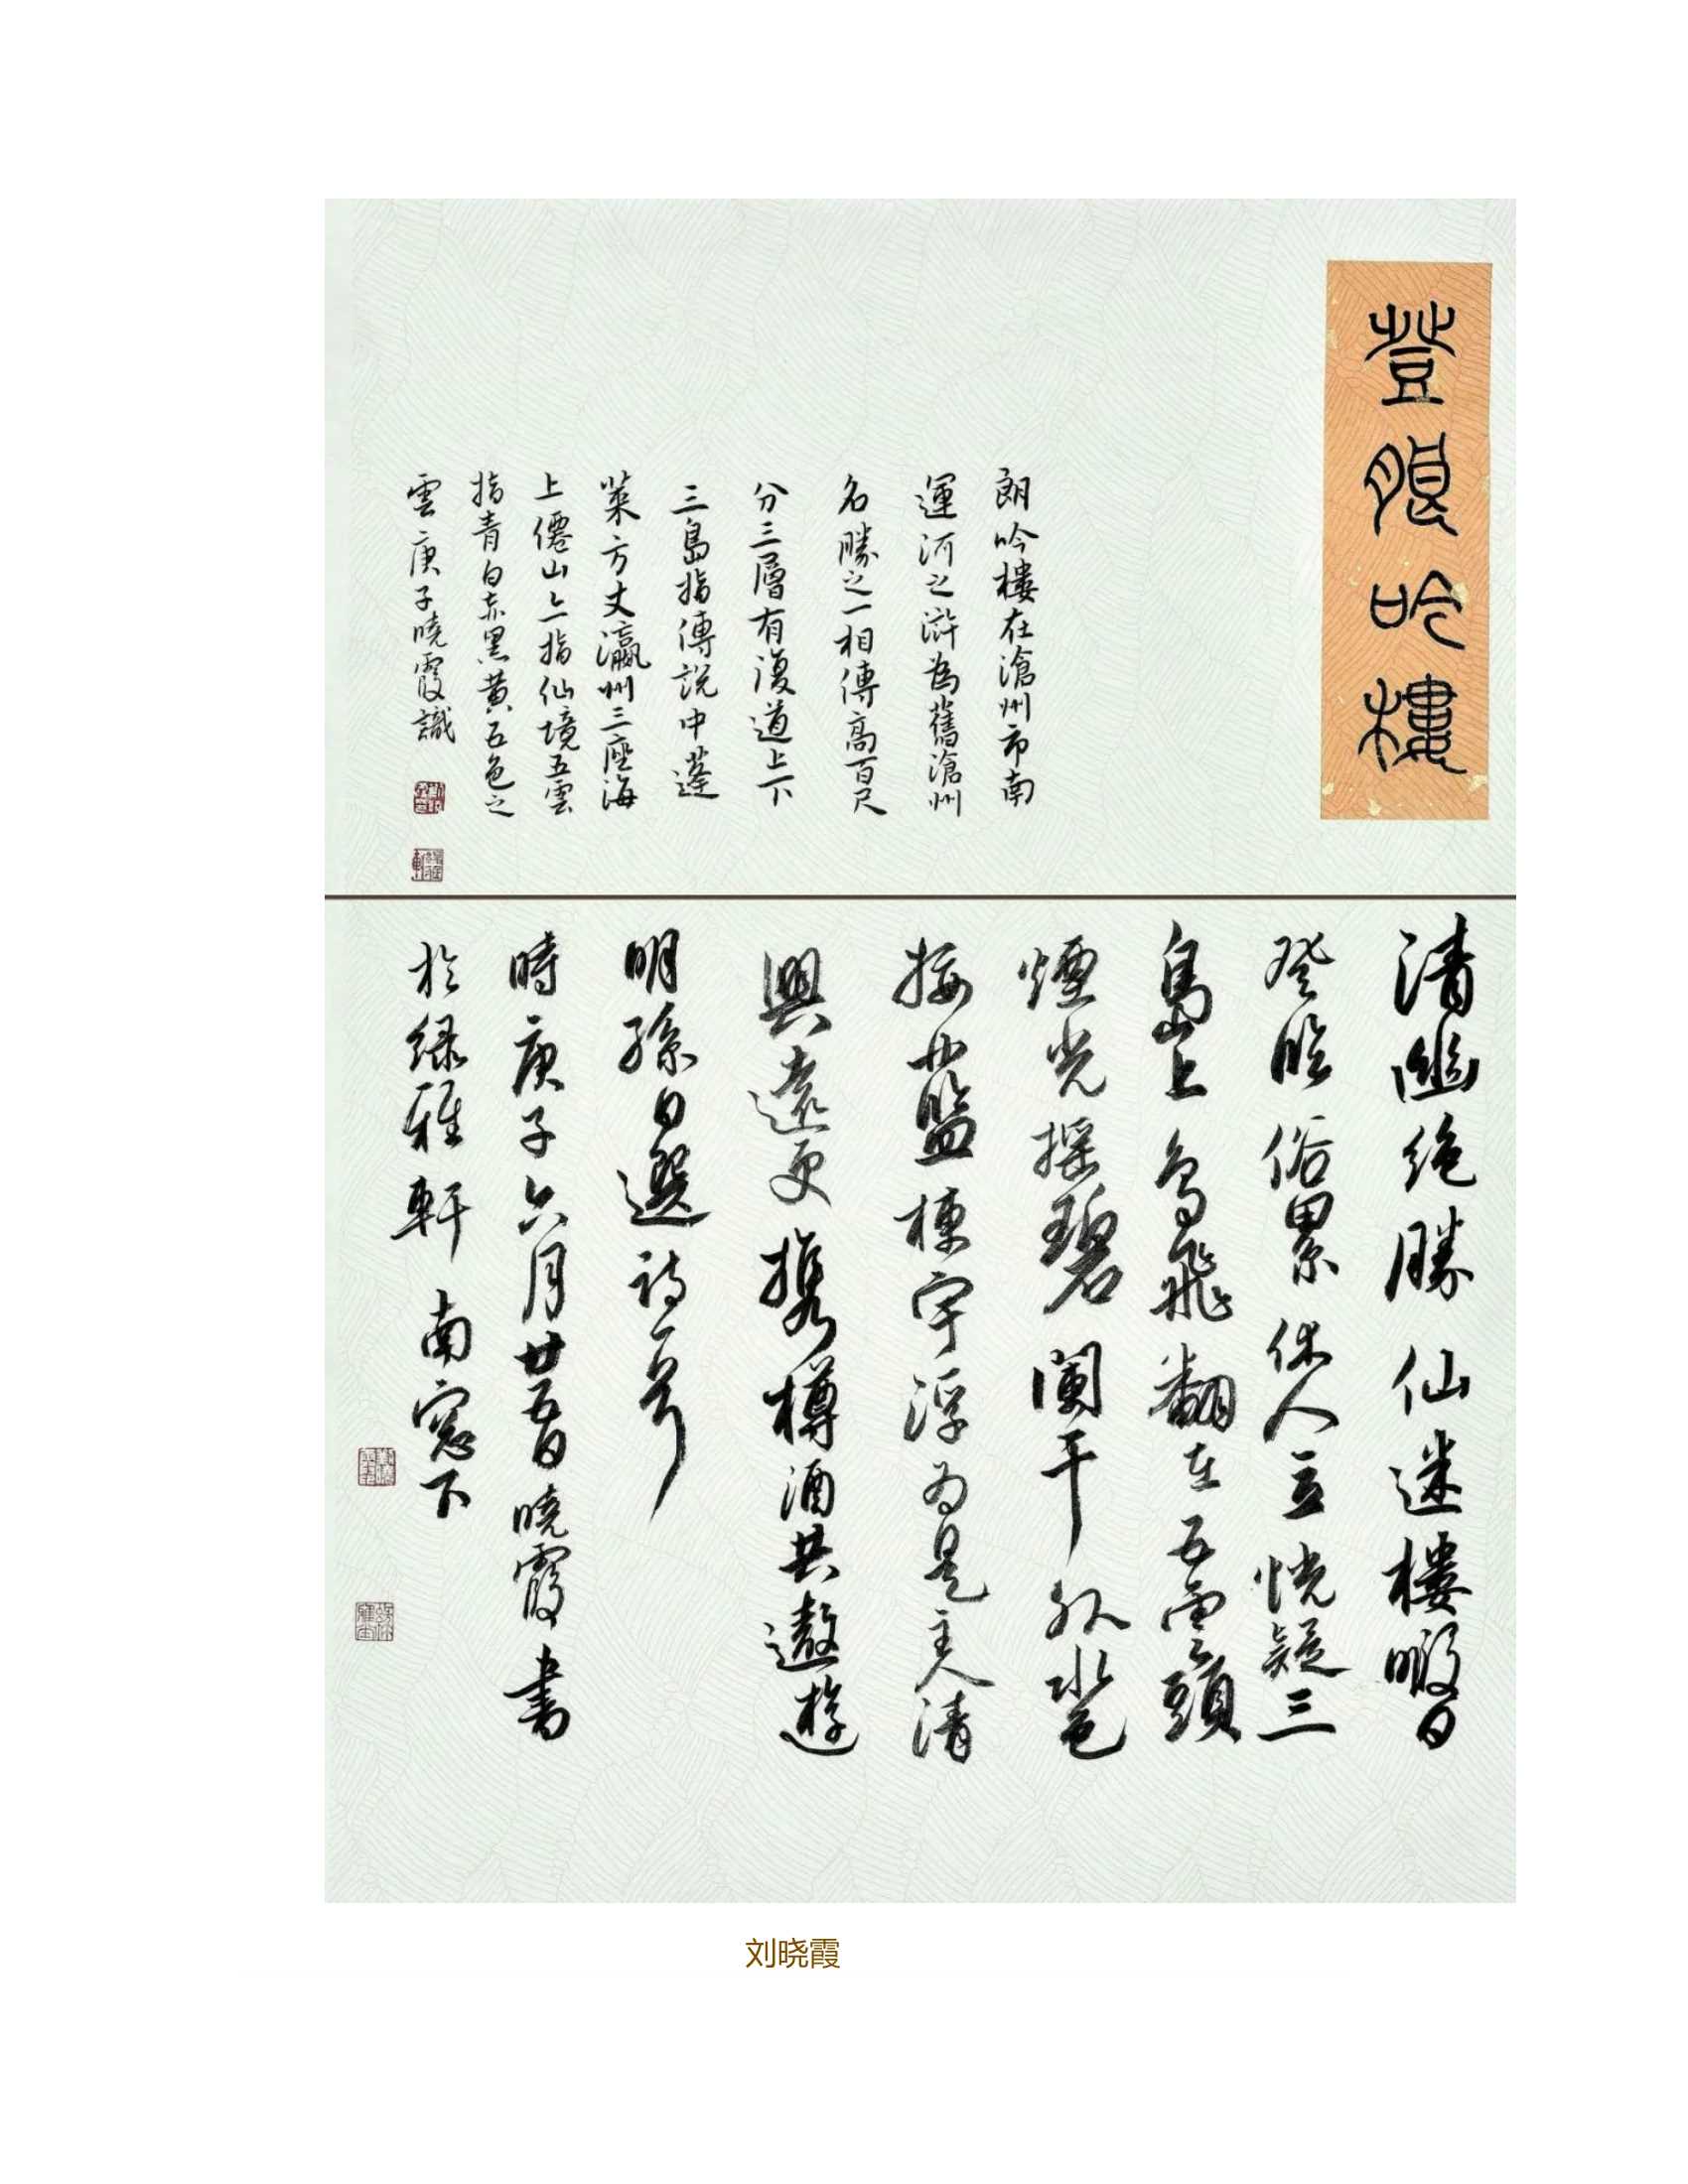 登朗吟樓
朗吟樓在滄州市南
運河之滸為舊滄州
名勝之一相傳高百尺
分三層有復道上下
三島指傳說中蓬
萊方丈瀛州三座海
上僊山亦指仙境五雲
指青白赤黑黃五色之
雲庚子曉霞識
清幽絶勝仙迷樓暇日
登臨俗累休人立恍疑三
島上鳥飛翻在五雲頭
煙光搖碧闌干外水色
挼藍棟宇浮為是主人清
興遠更攜樽酒共遨遊
明孫曰選詩一首
時庚子六月廿五日曉霞书
於绿雅軒南窓下
刘晓霞